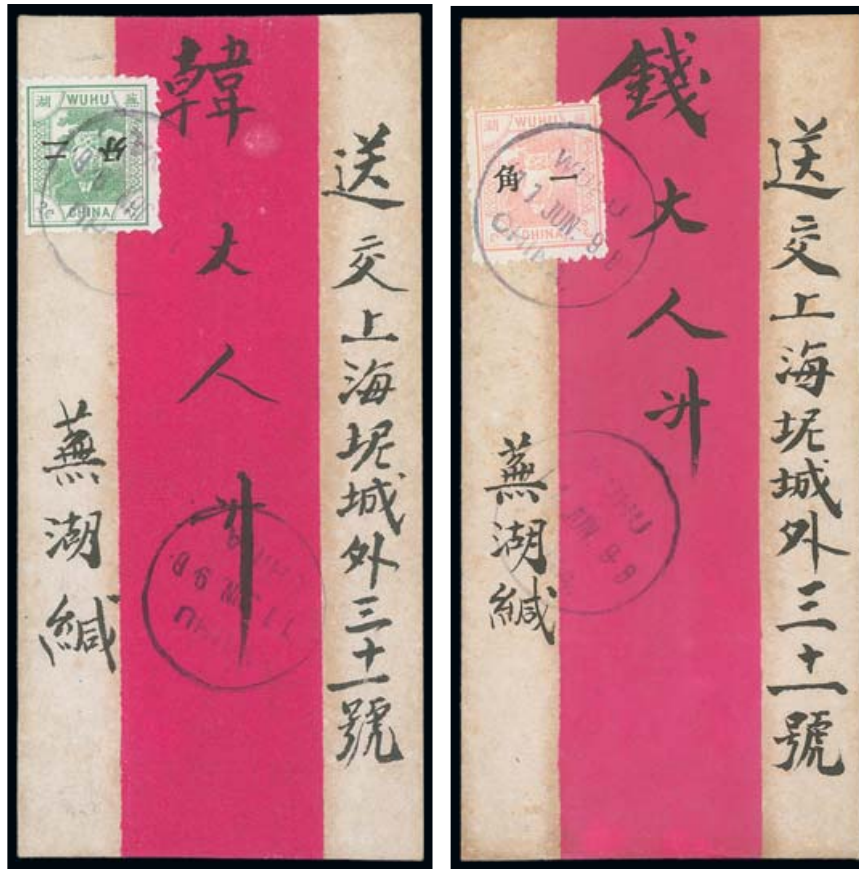 送交上海坭城外三十一號
韓大人升
蕪湖緘
湖 WUHU 蕪
二分
CHINA
送交上海坭城外三十一號
錢大人升
蕪湖緘
湖 WUHU 蕪
一角
CHINA
WUHU
JUN. 96
CHINA